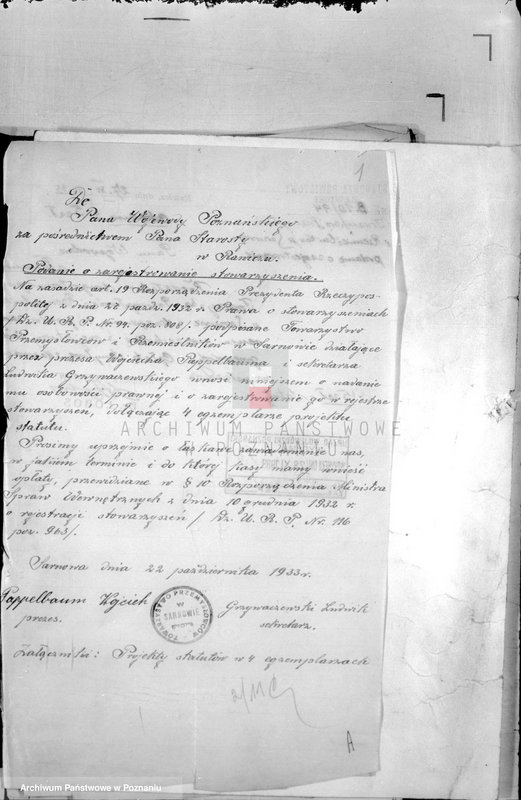 1
Do
Pana Wojewody Poznańskiego
za pośrednictwem Pana Starosty
w Rawiczu.
Podanie o zarejestrowanie stowarzyszenia.
Na zasadzie art. 19 Rozporządzenia Prezydenta Rzeczypos-
politej z dnia 27 paźdz. 1932 r. Prawa o stowarzyszeniach
/ Dz. U. R. P. Nr. 94 poz. 808/. podpisane Towarzystwo
Przemysłowców i Rzemieślników w Sarnowie działające
przez prezesa Wojciecha Pappelbauma i sekretarza
Ludwika Grzywaczewskiego wnosi niniejszem o nadanie
mu osobowości prawnej i o zarejestrowanie go w rejestrze
stowarzyszeń, dołączając 4 egzemplarze projektu
statutu.
Prosimy uprzejmie o łaskawe zawiadomienie nas,
w jakim terminie i do której kasy mamy wnieść
opłaty, przewidziane w § 10 Rozporządzenia Ministra
Spraw Wewnętrznych z dnia 10 grudnia 1932 r.
o rejestracji stowarzyszeń / Dz. U. R. P. Nr. 116
poz. 963/.
Sarnowa dnia 22 października 1933 r.
Pappelbaum Wojciech
prezes.
TOWARZYSTWO PRZEMYSŁOWCÓW
W
SARNOWIE
Grzywaczewski Ludwik
sekretarz.
Załączniki: Projekty statutów w 4 egzemplarzach
A
ARCHIWUM PAŃSTWOWE
W POZNANIU
Archiwum Państwowe w Poznaniu